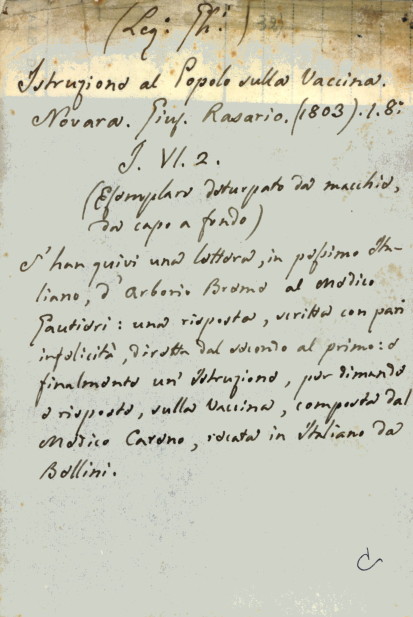 (Leg: Gh:)
Istruzione al Popolo sulla Vaccina.
Novara. Giuſ. Rasario. (1803). 1. 8:
J. VI. 2.
(Eſemplare deturpato da macchie,
da capo a fondo)
S' han quivi una lettera, in peſsimo Ita-
liano, d' Arborio Breme al Medico
Gautieri: una risposta, scritta con pari
infelicità, diretta dal secondo al primo: e
finalmente un' Istruzione, per dimande
e risposte, sulla Vaccina, composta dal
Medico Careno, recata in Italiano da
Bellini.